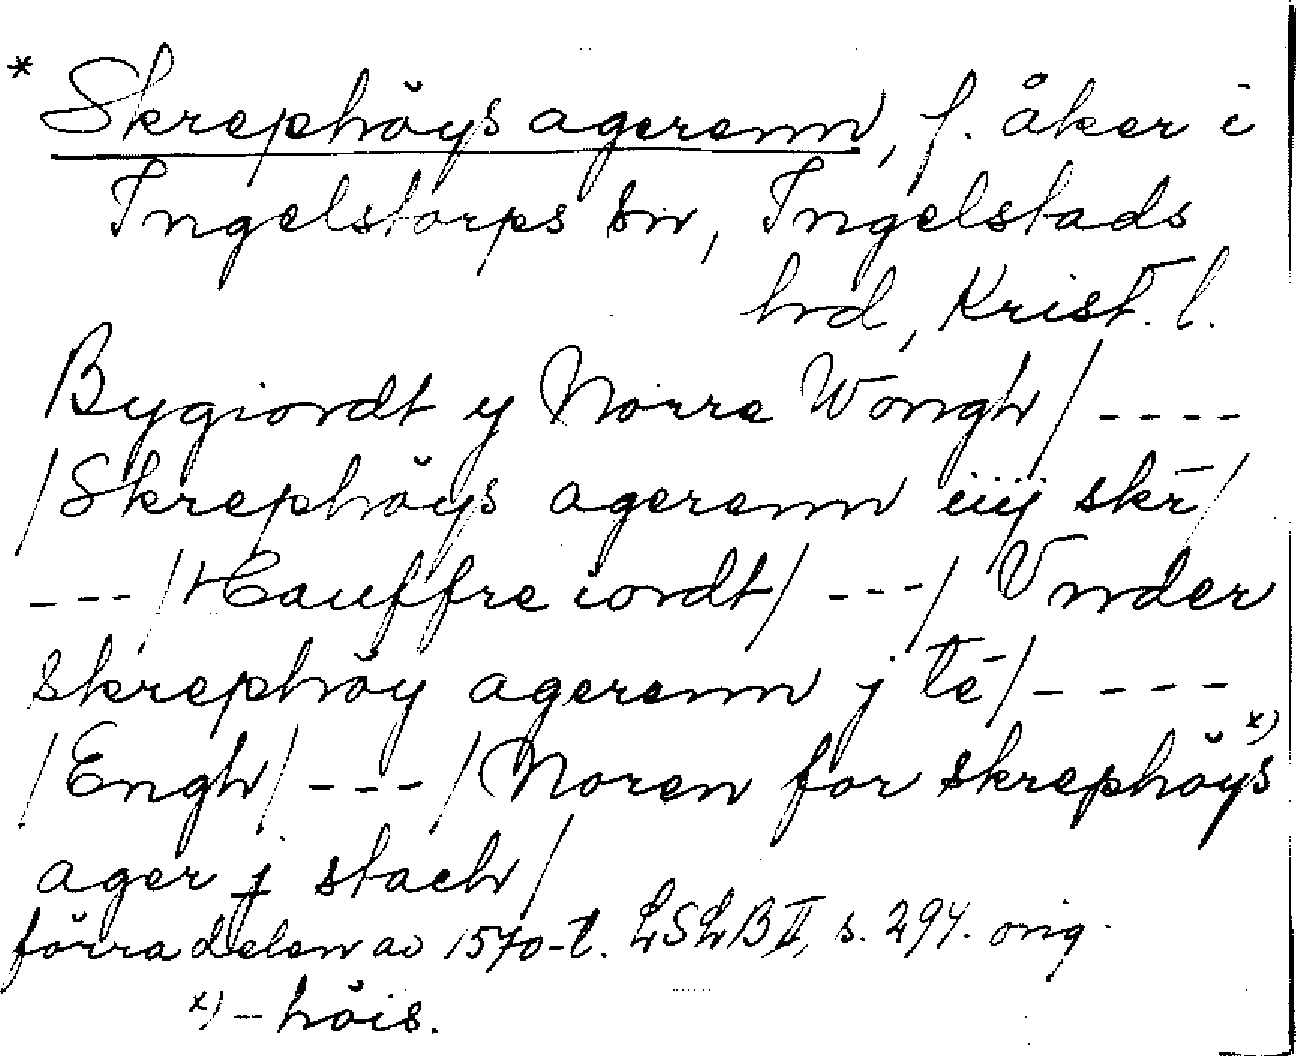 * Skrephöys agerenn, f. åker i
Ingelstorps sn, Ingelstads
hd, Krist. l.
Bygiordt y Norre Wongh / ----
/ Skrephöys agerenn iiij skr̄ /
--- / Hauffre iordt / --- / Vnder
skrephöy agerenn j tē / ----
/ Engh / --- / Noren for skrephöys x)
ager j stach /
förra delen av 1570-t. LSLB II, s. 294. orig.
x) – höis.